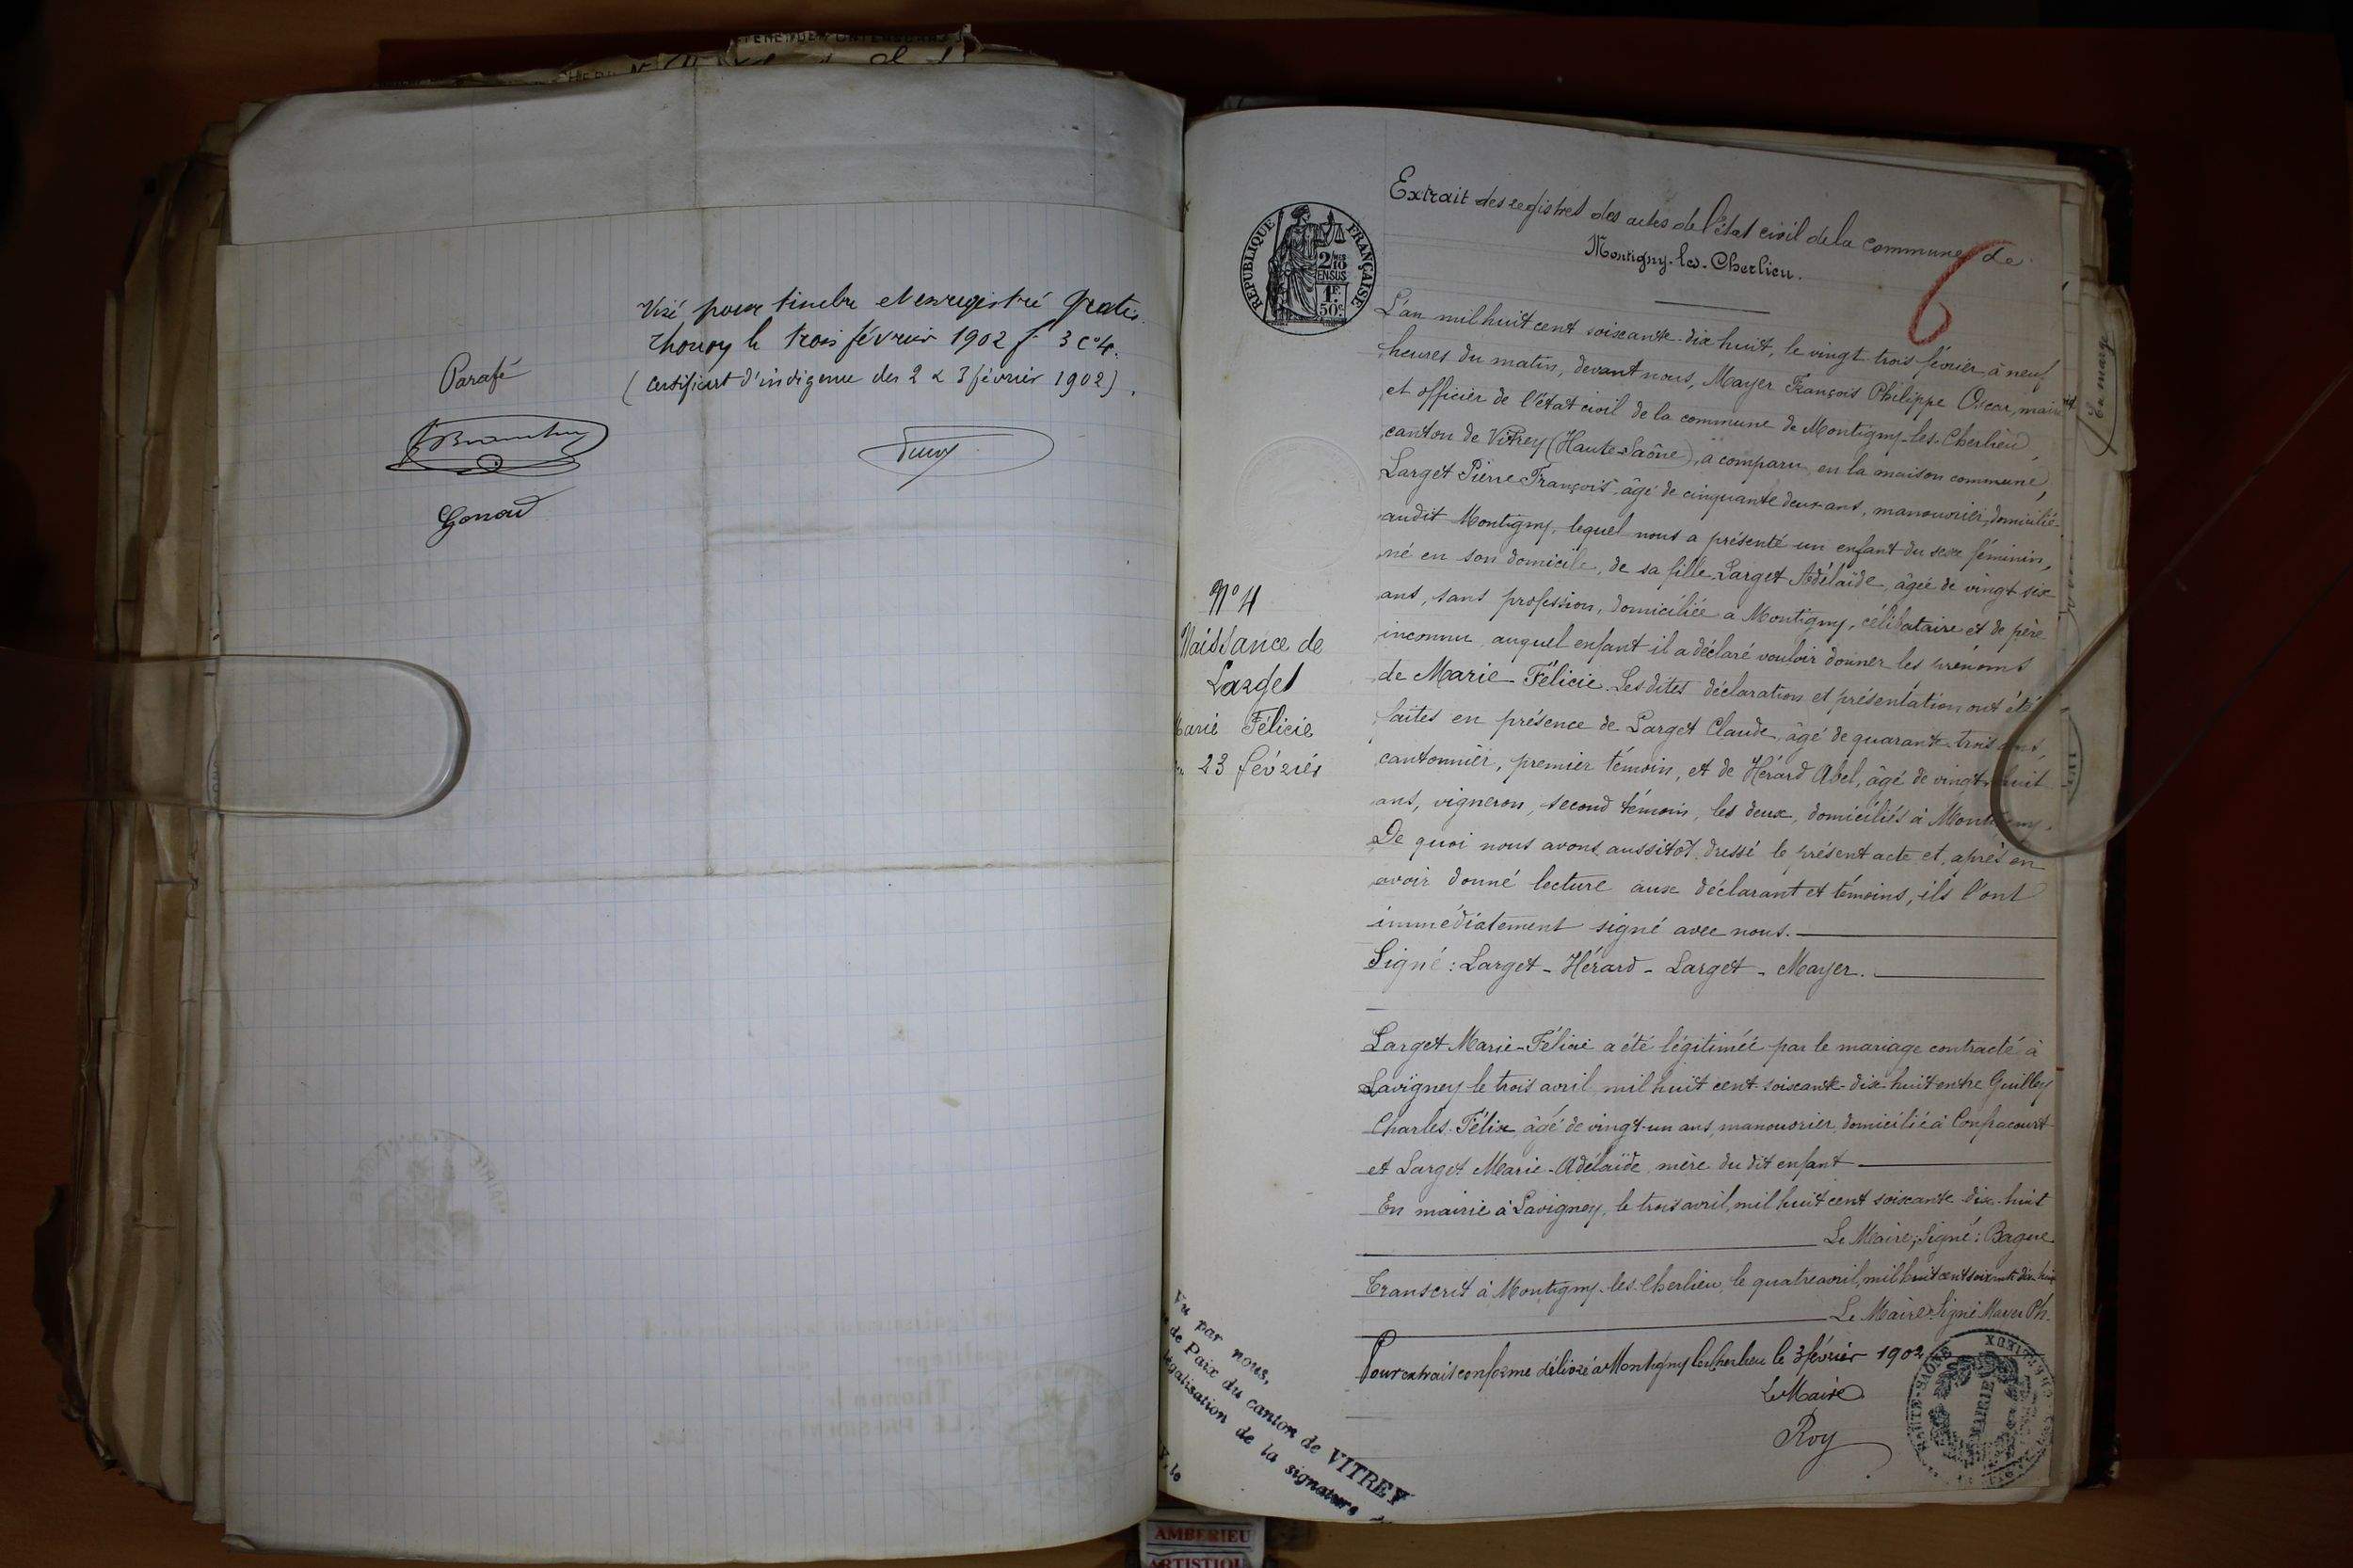 Visé pour timbre et enregistré gratis.
Thonon le trois février 1902 f° 3 c° 4.
(certificat d'indigence des 2 & 3 février 1902).
Parafé
Gonov
Extrait des registres des actes de l'état civil de la commune de
Montigny-les-Cherlieu.
6
REPUBLIQUE FRANÇAISE
2/10 EN SUS
1F.
50c.
L'an mil huit cent soixante-dix huit, le vingt-trois février, à neuf
heures du matin, devant nous, Mayer François Philippe Oscar, maire
et officier de l'état civil de la commune de Montigny-les-Cherlieu,
canton de Vitrey (Haute-Saône), a comparu en la maison commune,
Larget Pierre-François, âgé de cinquante deux ans, manouvrier, domicilié
audit Montigny, lequel nous a présenté un enfant du sexe féminin,
né en son domicile, de sa fille, Larget Adélaïde, âgée de vingt six
ans, sans profession, domiciliée à Montigny, célibataire et de père
inconnu auquel enfant il a déclaré vouloir donner les prénoms
de Marie-Félicie. Lesdites déclaration et présentation ont été
faites en présence de Larget Claude, âgé de quarante-trois ans,
cantonnier, premier témoin, et de Hérard Abel, âgé de vingt-huit
ans, vigneron, second témoin, les deux, domiciliés à Montigny.
De quoi nous avons aussitôt dressé le présent acte et, après en
avoir donné lecture aux déclarant et témoins, ils l'ont
immédiatement signé avec nous.
Signé : Larget - Hérard - Larget - Mayer.
N° 4
Naissance de
Larget
Marie Félicie
23 février
Larget Marie-Félicie a été légitimée par le mariage contracté à
Lavigney le trois avril mil huit cent soixante-dix-huit entre Guilley
Charles-Félix, âgé de vingt-un ans, manouvrier, domicilié à Confracourt
et Larget Marie-Adélaïde, mère du dit enfant
En mairie à Lavigney, le trois avril, mil huit cent soixante-dix-huit
Le Maire, Signé : Bague.
Transcrit à Montigny-les-Cherlieu, le quatre avril, mil huit cent soixante dix-huit
Le Maire Signé Mayer Ph.
Pour extrait conforme délivré à Montigny les Cherlieu le 3 février 1902
Le Maire
Roy
HAUTE-SAÔNE
MAIRIE
Vu par nous,
de Paix du canton de VITREY
légalisation de la signature
En marge
AMBERIEU
ARTISTIQU